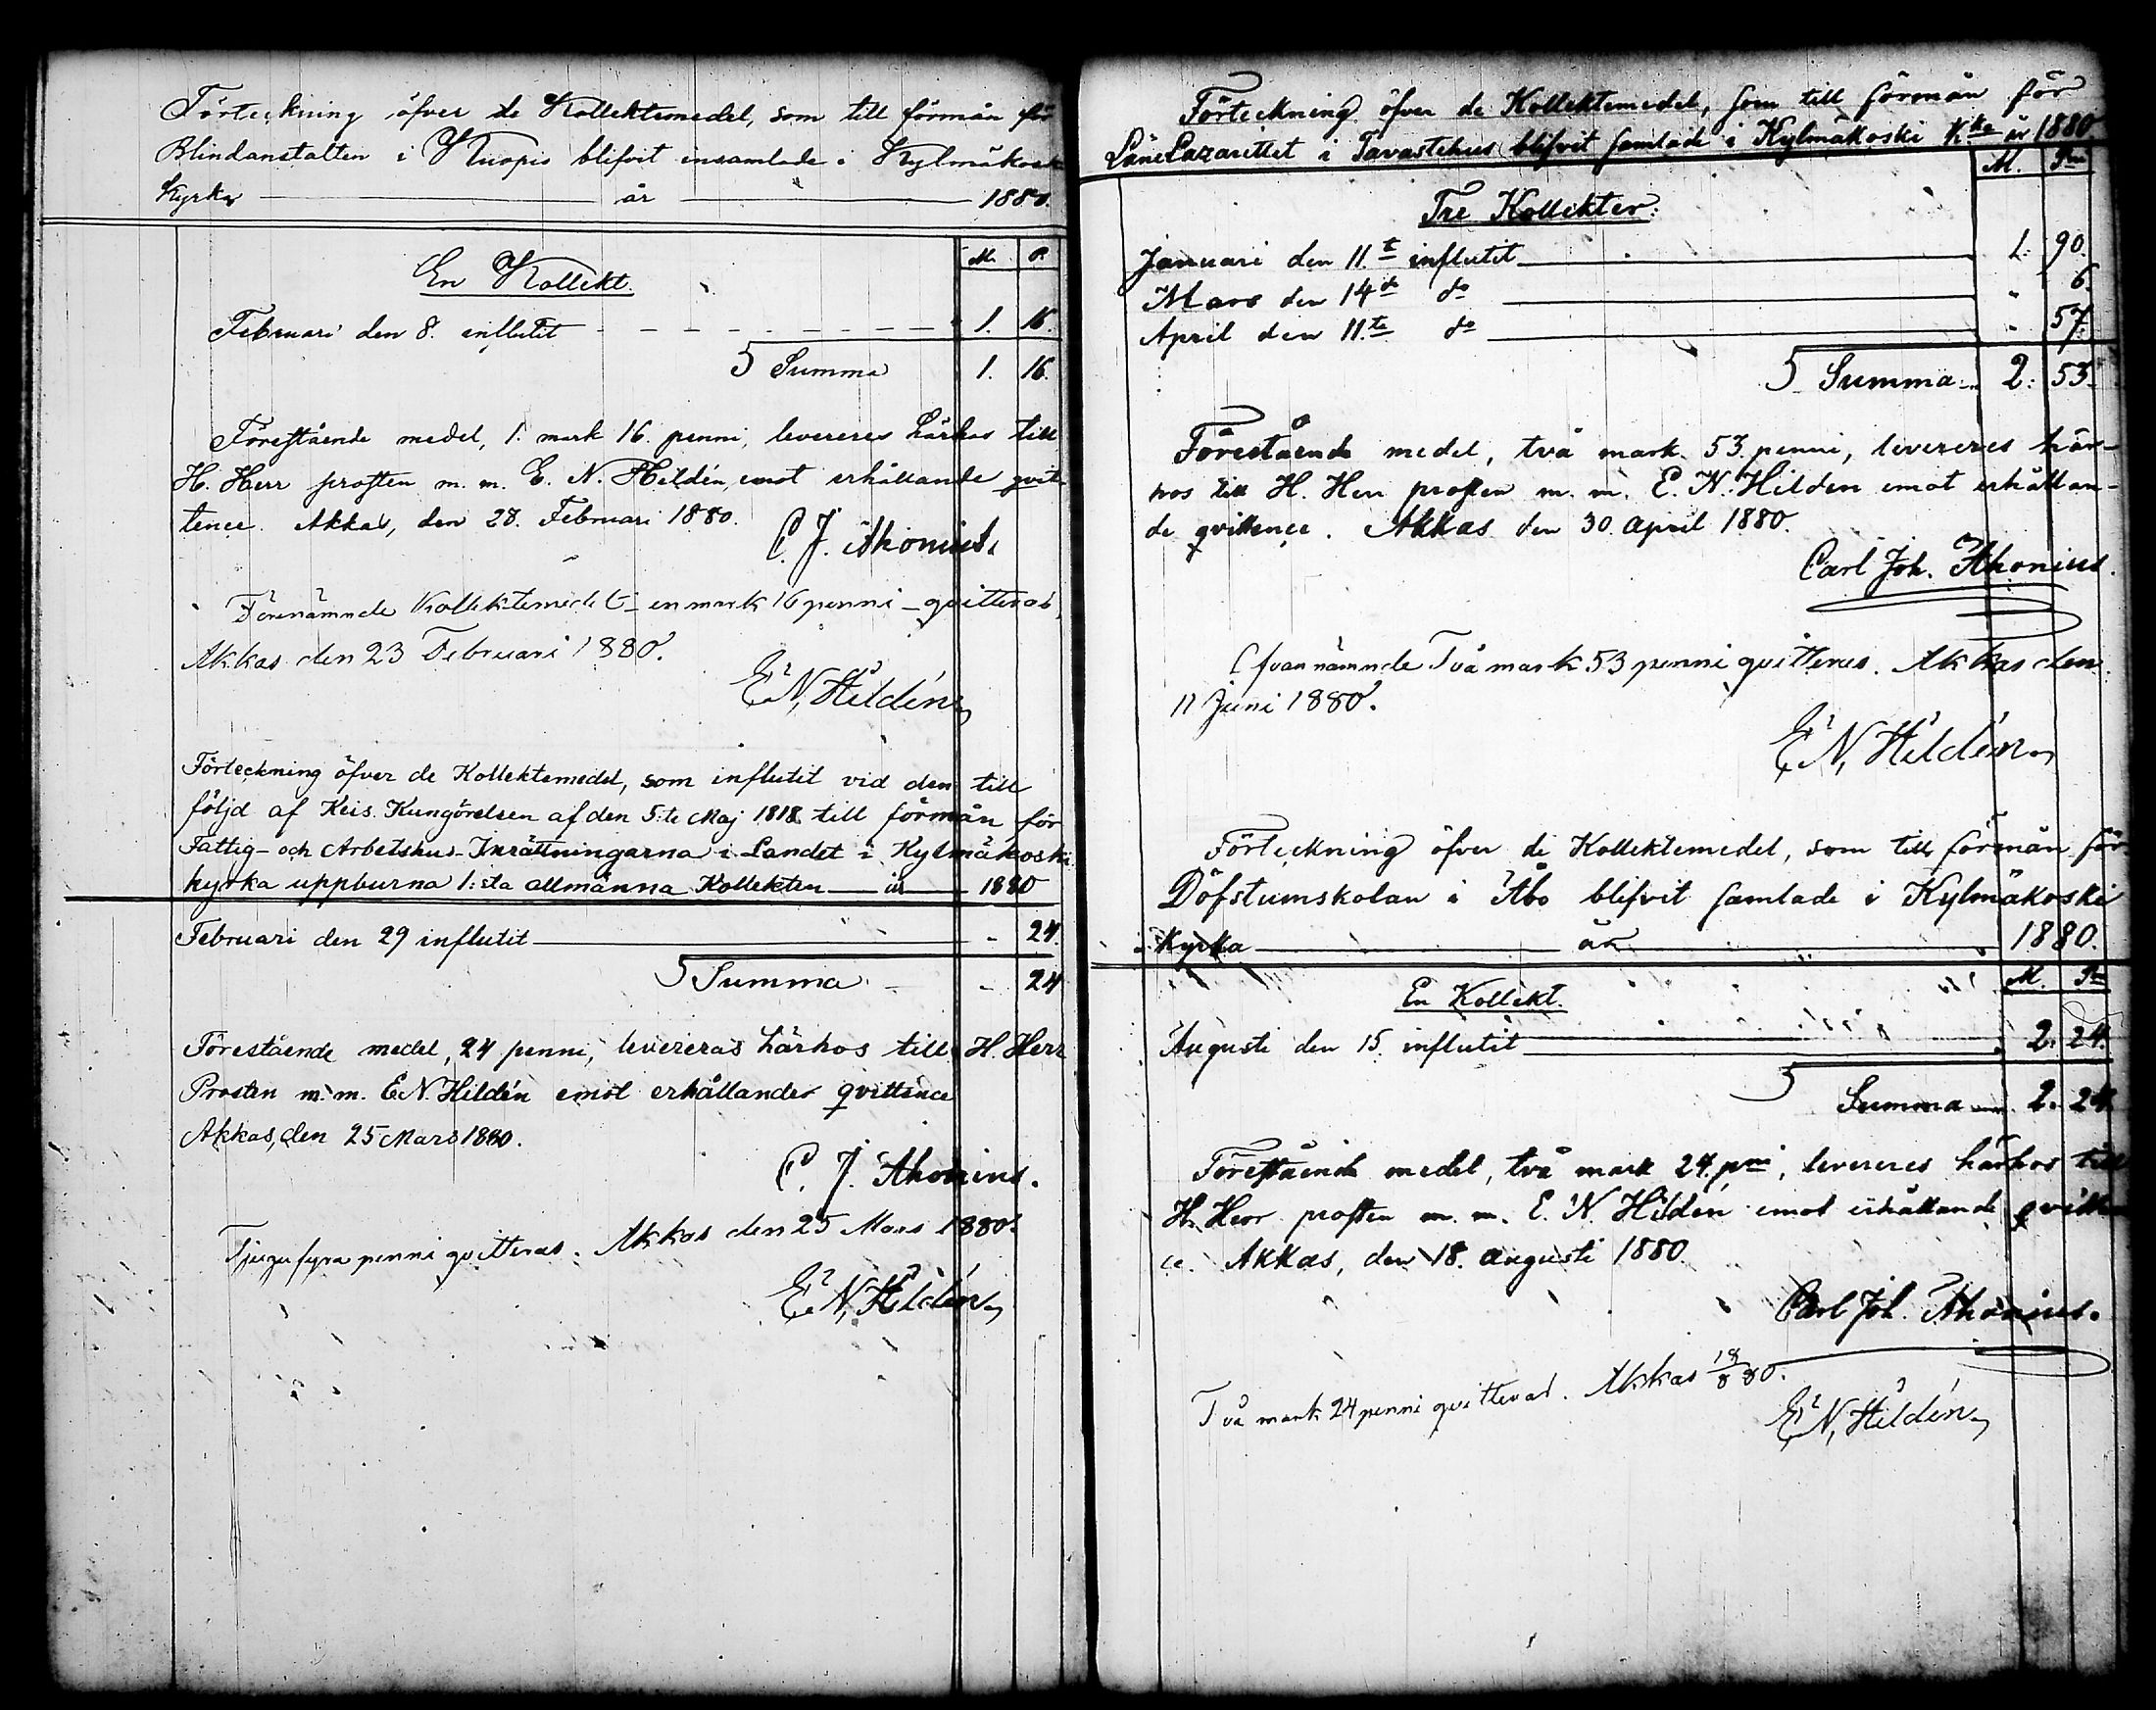 Förteckning öfver de Kollektemedel, som till förmån för
Blindanstalten i Kuopio blifvit insamlade i Kylmäkoski
Kyrka år 1880.
M. P.
En Kollekt.
Februari den 8. influtit 1. 16.
Summa 1. 16.
Förestående medel, 1. mark 16. penni, levereres härhos till
H. Herr prosten m. m. E. N. Hildén, emot erhållande qvit-
tence. Akkas, den 28. Februari 1880.
C. J. Ahonius.
Förenämnde Kollektemedel - en mark 16 penni - qvitteras,
Akkas den 23 Februari 1880.
E. N. Hildén
Förteckning öfver de Kollektemedel, som influtit vid den till
följd af Keis. Kungörelsen af den 5:te Maj 1818 till förmån för
Fattig- och Arbetshus-Inrättningarna i Landet i Kylmäkoski
kyrka uppburna 1:sta allmänna Kollekten år 1880
Februari den 29 influtit - 24.
Summa - 24
Förestående medel, 24 penni, levereras härhos till H. Herr
Prosten m. m. E N. Hildén emot erhållande qvittence
Akkas, den 25 Mars 1880.
C. J. Ahonius.
Tjugufyra penni qvitteras. Akkas den 25 Mars 1880.
E. N. Hildén
Förteckning öfver de Kollektemedel, som till förmån för
LäneLazarettet i Tavastehus blifvit samlade i Kylmäkoski K:ka år 1880
M. P:ni
Tre Kollekter:
Januari den 11.t influtit 1: 90.
Mars den 14de do " 6.
April den 11.te do " 57.
Summa 2: 53.
Förestående medel, två mark 53. penni, levereres här-
hos till H. Herr prosten m. m. E. N. Hildén emot erhållan-
de qvittence. Akkas den 30. April 1880.
Carl Joh. Ahonius.
Ofvannämnde Två mark 53 penni qvitteras. Akkas den
11 Juni 1880.
E. N. Hildén
Förteckning öfver de Kollektemedel, som till förmån för
Döfstumskolan i Åbo blifvit samlade i Kylmäkoski
Kyrka år 1880.
M. P:ni
En Kollekt.
Augusti den 15. influtit 2. 24.
Summa 2. 24.
Förestående medel, två mark 24. pni, levereres härhos till
H. Herr prosten m. m. E. N. Hildén emot erhållande qvitten-
ce. Akkas, den 18. augusti 1880.
Carl Joh. Ahonius.
Två mark 24 penni qvitteras. Akkas 18/8 80.
E. N. Hildén